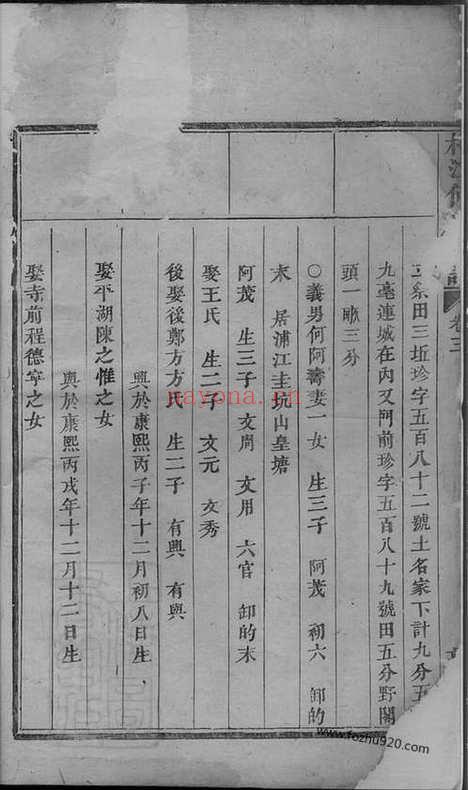 卷三
三系田三坵珍字五百八十二號土名家下計九分五
九毫連城在內又門前珍字五百八十九號田五分野關
頭一畝三分
○義男何阿壽妻一女 生三子 阿茂 初六 卸的
末 居浦江圭坑山皇塘
阿茂 生三子 文周 文用 六官 卸的末
娶王氏 生二子 文元 文秀
後娶後鄭方方氏 生二子 有興 有與
興於康熙丙子年十二月初八日生
娶平湖陳之惟之女
與於康熙丙戌年十二月十二日生
娶寺前程德寧之女
nayona.cn
www.fozhu920.com